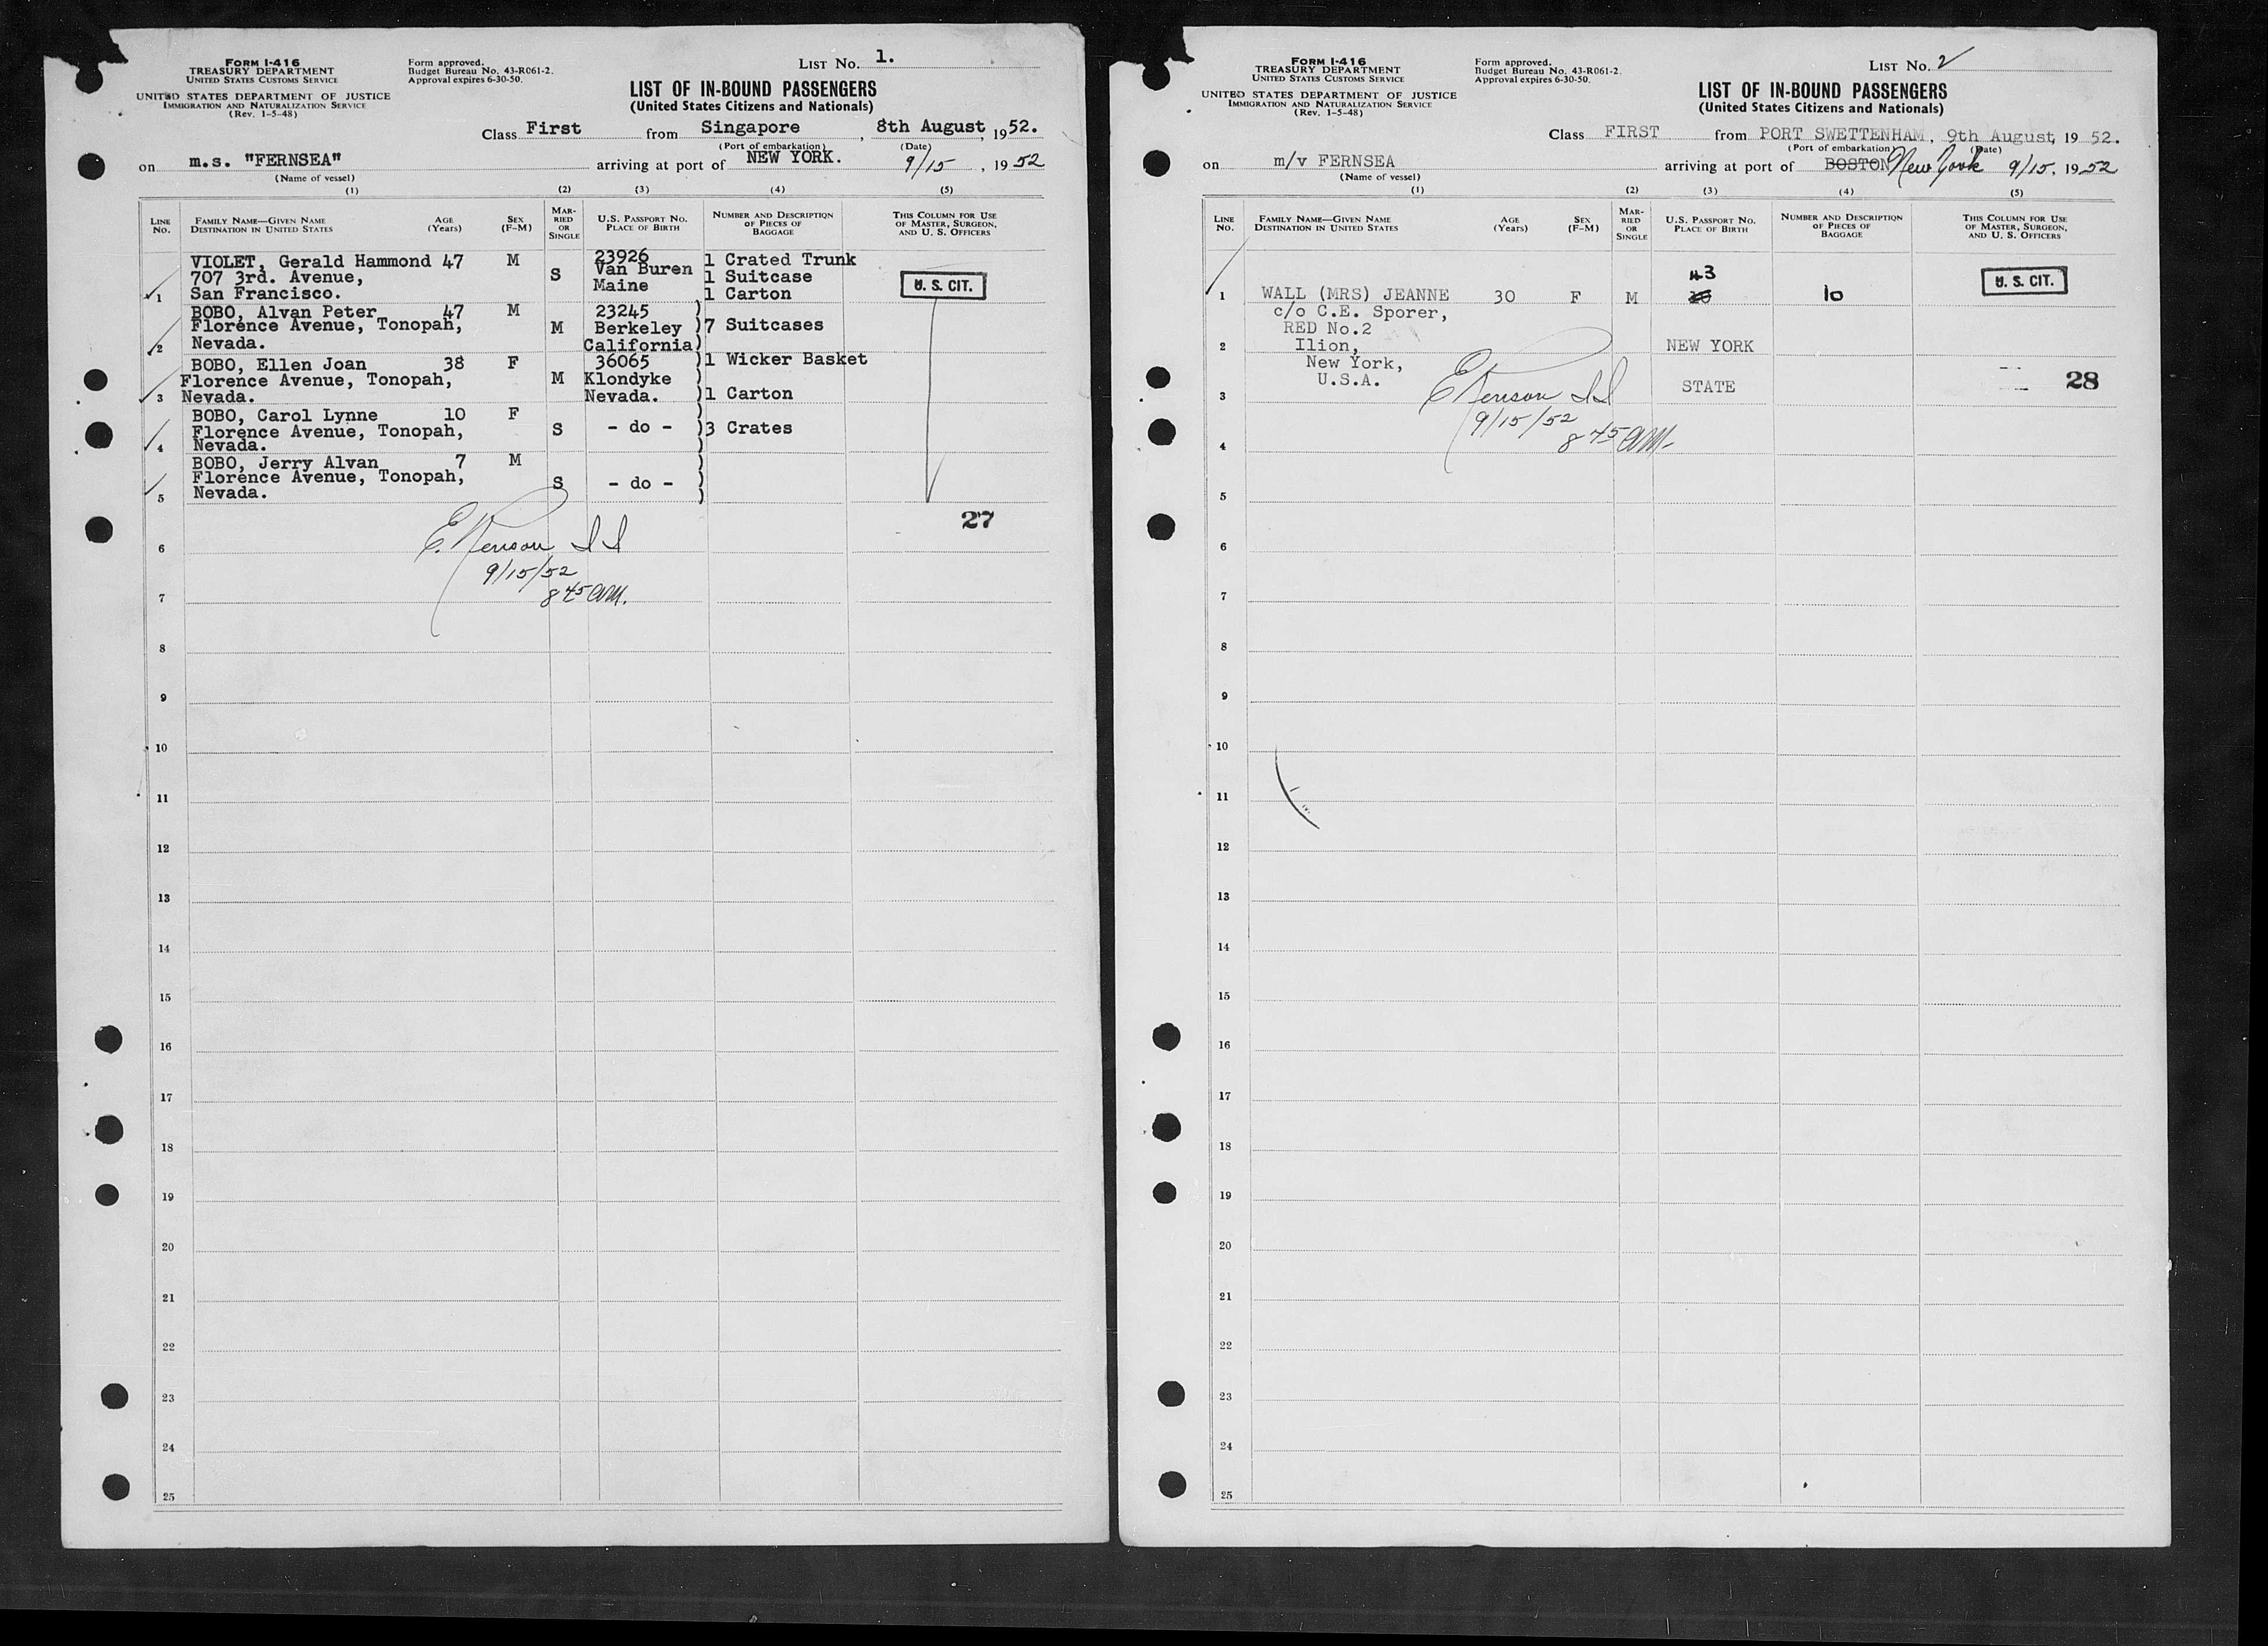 FORM I-416
TREASURY DEPARTMENT
UNITED STATES CUSTOMS SERVICE
UNITED STATES DEPARTMENT OF JUSTICE
IMMIGRATION AND NATURALIZATION SERVICE
(Rev. 1-5-48)
Form approved.
Budget Bureau No. 43-R061-2.
Approval expires 6-30-50.
LIST No. 1.
LIST OF IN-BOUND PASSENGERS
(United States Citizens and Nationals)
Class First from Singapore, 8th August, 1952.
(Port of embarkation) (Date)
on m.s. "FERNSEA" arriving at port of NEW YORK. 9/15, 1952
(Name of vessel)
(1) (2) (3) (4) (5)
LINE No. FAMILY NAME—GIVEN NAME DESTINATION IN UNITED STATES AGE (Years) SEX (F-M) MARRIED OR SINGLE U.S. PASSPORT No. PLACE OF BIRTH NUMBER AND DESCRIPTION OF PIECES OF BAGGAGE THIS COLUMN FOR USE OF MASTER, SURGEON, AND U. S. OFFICERS
VIOLET, Gerald Hammond 47 M 23926 1 Crated Trunk
707 3rd. Avenue, S Van Buren 1 Suitcase U. S. CIT.
1 San Francisco. Maine 1 Carton
BOBO, Alvan Peter 47 M 23245 )
Florence Avenue, Tonopah, M Berkeley )7 Suitcases
2 Nevada. California)
BOBO, Ellen Joan 38 F 36065 )1 Wicker Basket
Florence Avenue, Tonopah, M Klondyke )
3 Nevada. Nevada. )1 Carton
BOBO, Carol Lynne 10 F )
Florence Avenue, Tonopah, S - do - )3 Crates
4 Nevada. )
BOBO, Jerry Alvan 7 M )
Florence Avenue, Tonopah, S - do - )
5 Nevada. )
27
6
9/15/52
7 8 45 AM.
8
9
10
11
12
13
14
15
16
17
18
19
20
21
22
23
24
25
FORM I-416
TREASURY DEPARTMENT
UNITED STATES CUSTOMS SERVICE
UNITED STATES DEPARTMENT OF JUSTICE
IMMIGRATION AND NATURALIZATION SERVICE
(Rev. 1-5-48)
Form approved.
Budget Bureau No. 43-R061-2.
Approval expires 6-30-50.
LIST No. 2
LIST OF IN-BOUND PASSENGERS
(United States Citizens and Nationals)
Class FIRST from PORT SWETTENHAM, 9th August, 1952.
(Port of embarkation) (Date)
on m/v FERNSEA arriving at port of BOSTON New York 9/15. 1952
(Name of vessel)
(1) (2) (3) (4) (5)
LINE No. FAMILY NAME—GIVEN NAME DESTINATION IN UNITED STATES AGE (Years) SEX (F-M) MARRIED OR SINGLE U.S. PASSPORT No. PLACE OF BIRTH NUMBER AND DESCRIPTION OF PIECES OF BAGGAGE THIS COLUMN FOR USE OF MASTER, SURGEON, AND U. S. OFFICERS
43 U. S. CIT.
1 WALL (MRS) JEANNE 30 F M 10
c/o C.E. Sporer,
RED No.2
2 Ilion, NEW YORK
New York,
U.S.A. STATE 28
3
9/15/52
4 8 45 AM.
5
6
7
8
9
10
11
12
13
14
15
16
17
18
19
20
21
22
23
24
25